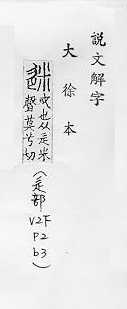 說文解字
大徐本
迷 或也从辵米
聲莫兮切
(辵部 V2F P2 b3)